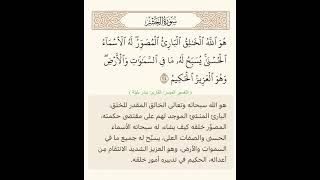 سُورَةُ الحَشْرِ
هُوَ ٱللَّهُ ٱلْخَٰلِقُ ٱلْبَارِئُ ٱلْمُصَوِّرُ ۖ لَهُ ٱلْأَسْمَآءُ
ٱلْحُسْنَىٰ ۚ يُسَبِّحُ لَهُۥ مَا فِى ٱلسَّمَٰوَٰتِ وَٱلْأَرْضِ ۖ
وَهُوَ ٱلْعَزِيزُ ٱلْحَكِيمُ ٢٤
هو الله سبحانه وتعالى الخالق المقدر للخلق،
البارئ المنشئ الموجد لهم على مقتضى حكمته،
المصوِّر خلقه كيف يشاء، له سبحانه الأسماء
الحسنى والصفات العلى، يسبِّح له جميع ما في
السموات والأرض، وهو العزيز الشديد الانتقام مِن
أعدائه، الحكيم في تدبيره أمور خلقه.